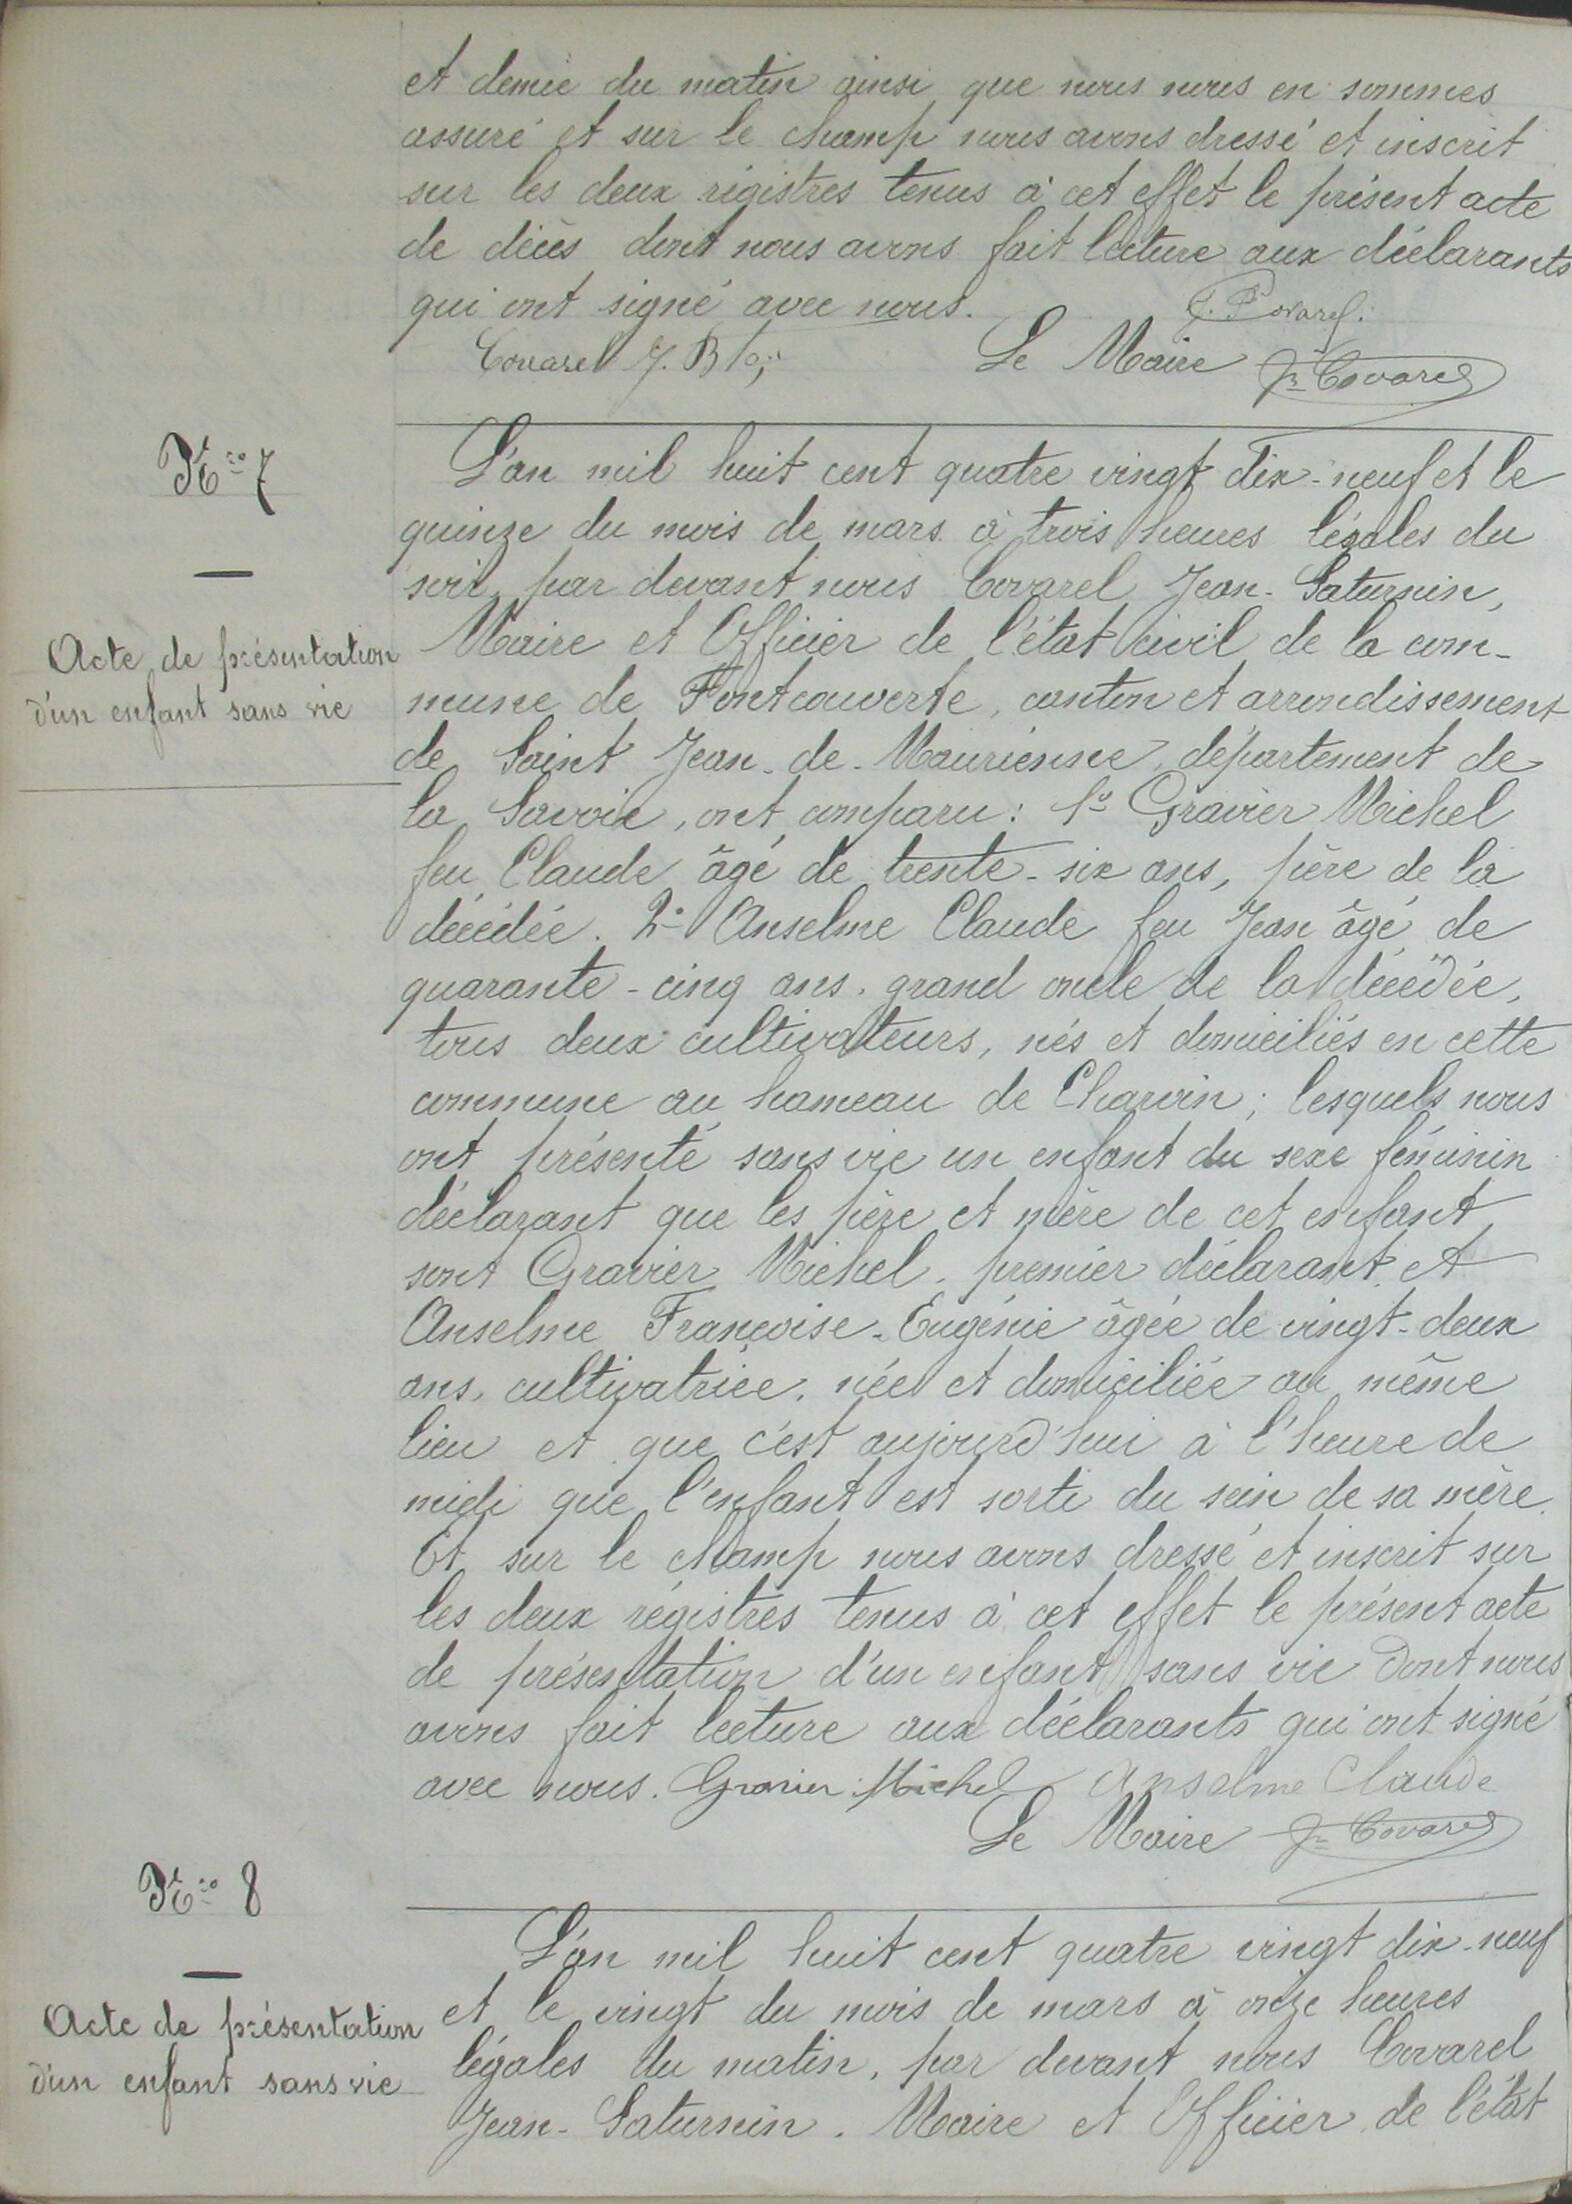 et demie du matin ainsi que nous nous en sommes
assuré et sur le champ nous avons dressé et inscrit
sur les deux régistres tenus à cet effet le présent acte
de décès dont nous avons fait lecture aux déclarants
qui ont signé avec nous.
Covarel J. Bte
Le Maire Jn Covarel
No 7
Acte de présentation
d'un enfant sans vie
L'an mil huit cent quatre vingt dix-neuf et le
quinze du mois de mars à trois heures légales du
soir, par devant nous Covarel Jean-Saturnin,
Maire et Officier de l'état civil de la com-
mune de Fontcouverte, canton et arrondissement
de Saint Jean-de-Maurienne, département de
la Savoie, ont comparu : 1o Gravier Michel
feu Claude âgé de trente-six ans, père de la
décédée. 2o Anselme Claude feu Jean âgé de
quarante-cinq ans, grand oncle de la décédée,
tous deux cultivateurs, nés et domiciliés en cette
commune au hameau de Charvin ; lesquels nous
ont présenté sans vie un enfant du sexe féminin
déclarant que les père et mère de cet enfant
sont Gravier Michel, premier déclarant et
Anselme Françoise-Eugénie âgée de vingt-deux
ans, cultivatrice, née et domiciliée au même
lieu et que c'est aujourd'hui à l'heure de
midi que l'enfant est sorti du sein de sa mère.
Et sur le champ nous avons dressé et inscrit sur
les deux régistres tenus à cet effet le présent acte
de présentation d'un enfant sans vie dont nous
avons fait lecture aux déclarants qui ont signé
avec nous. Gravier Michel Anselme Claude
Le Maire Jn Covarel
No 8
Acte de présentation
d'un enfant sans vie
L'an mil huit cent quatre vingt dix-neuf
et le vingt du mois de mars à onze heures
légales du matin, par devant nous Covarel
Jean-Saturnin, Maire et Officier de l'état